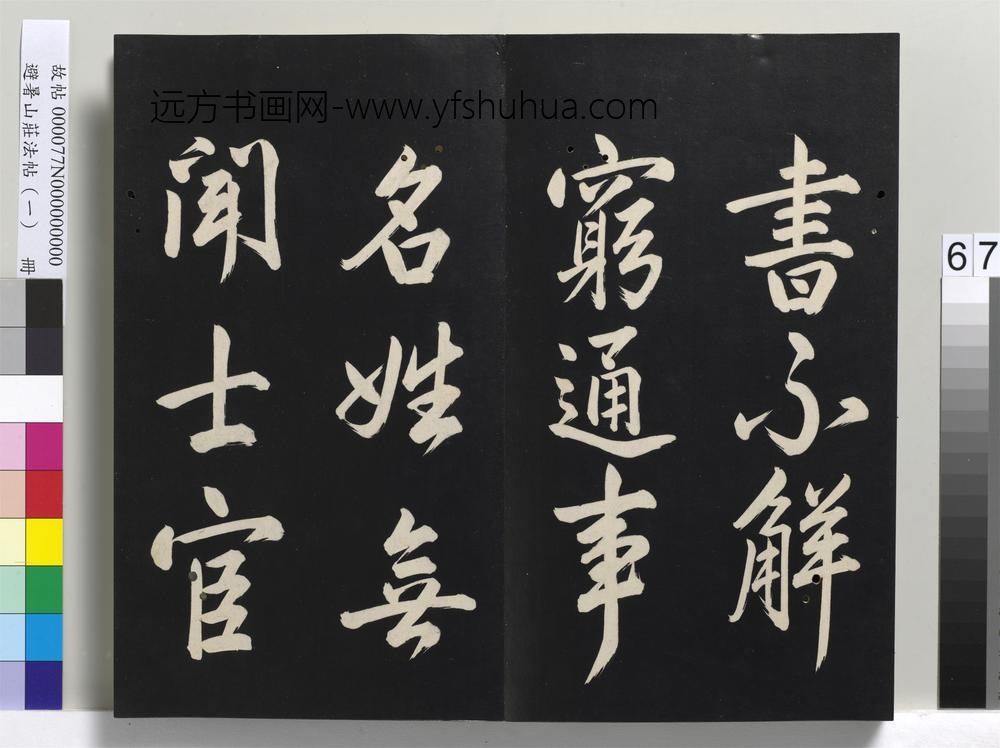 書不解
窮通事
名姓無
聞士宦
远方书画网-www.yfshuhua.com
故帖 000077N000000000
避暑山莊法帖（一） 冊
6 7